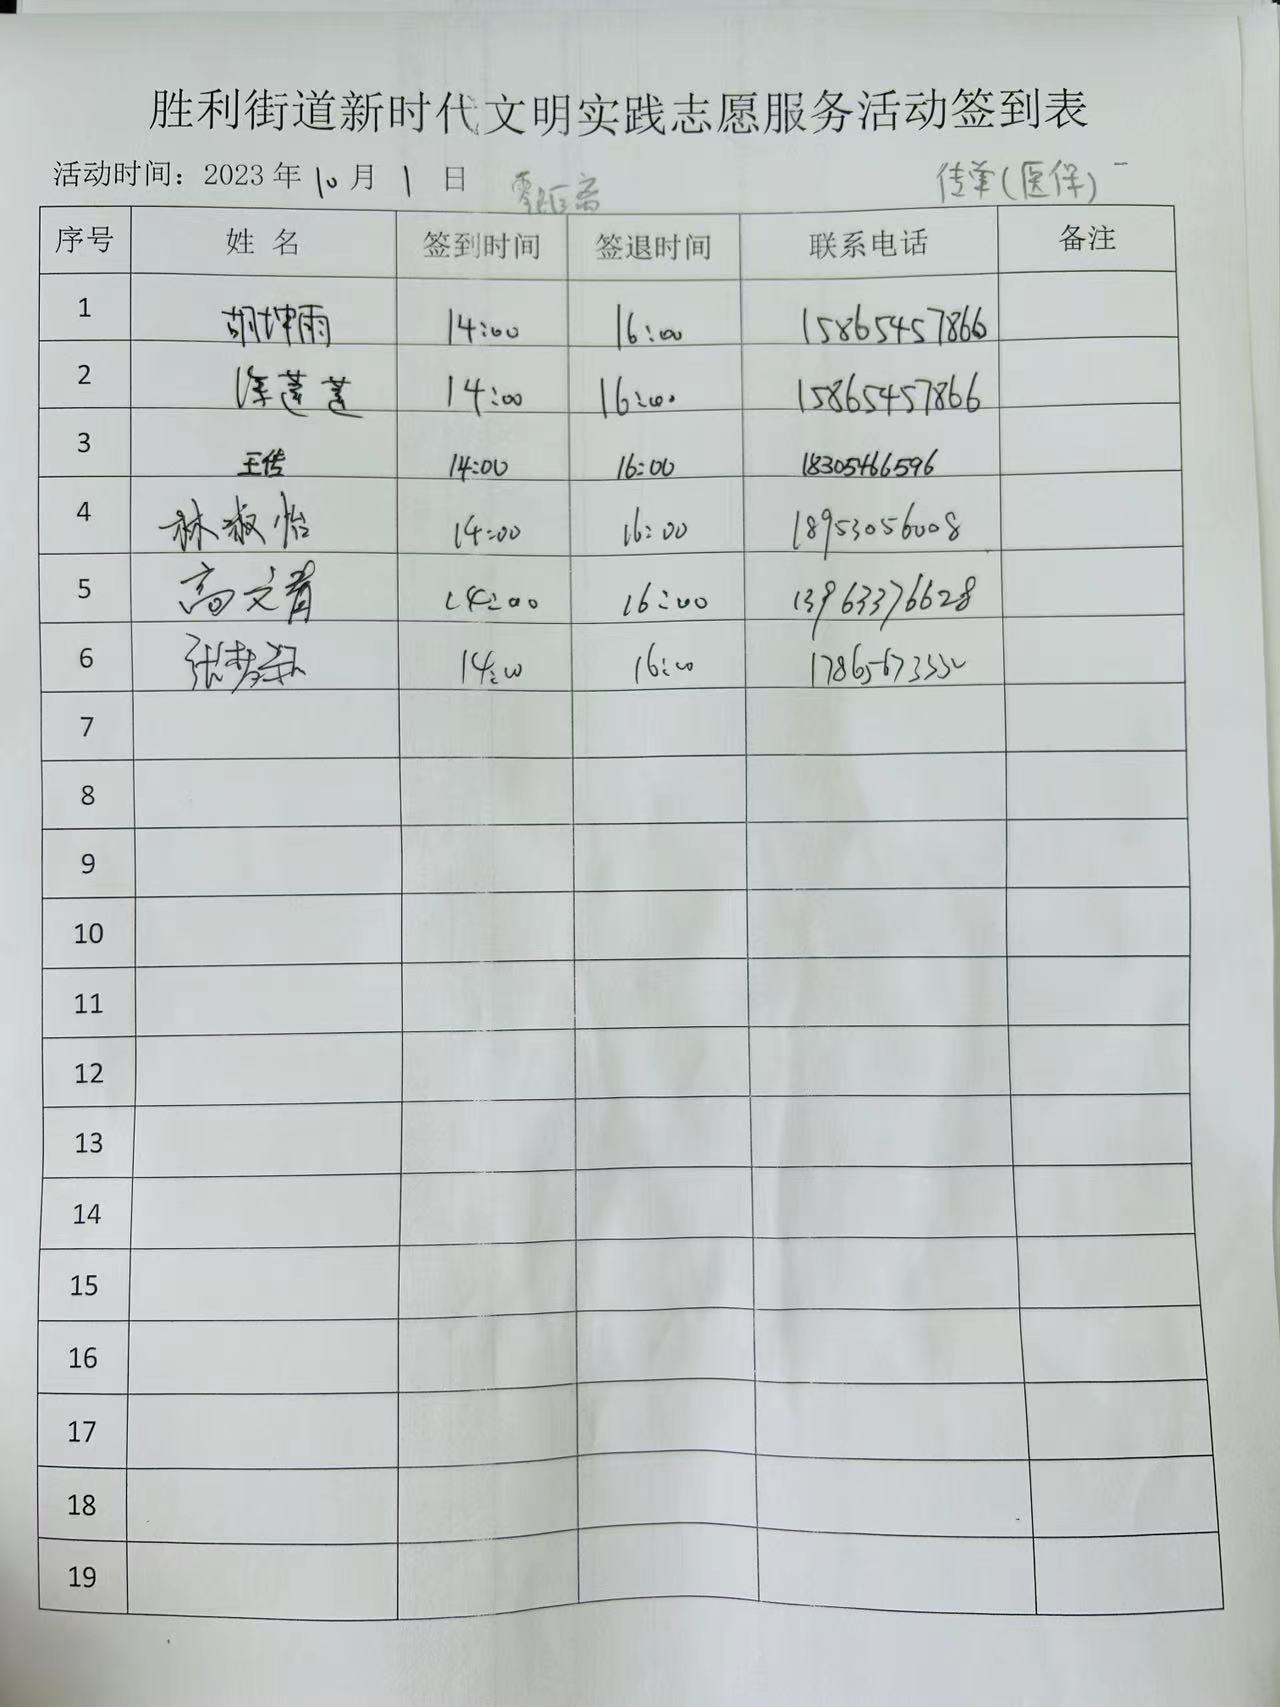 胜利街道新时代文明实践志愿服务活动签到表
活动时间：2023年10月1日 零距离 传单(医保)
序号 姓名 签到时间 签退时间 联系电话 备注
1 胡坤雨 14:00 16:00 15865457866
2 徐莲莲 14:00 16:00 15865457866
3 王传 14:00 16:00 18305466596
4 林淑怡 14:00 16:00 18953056008
5 高文青 14:00 16:00 13963376628
6 张梦 14:00 16:00
7
8
9
10
11
12
13
14
15
16
17
18
19